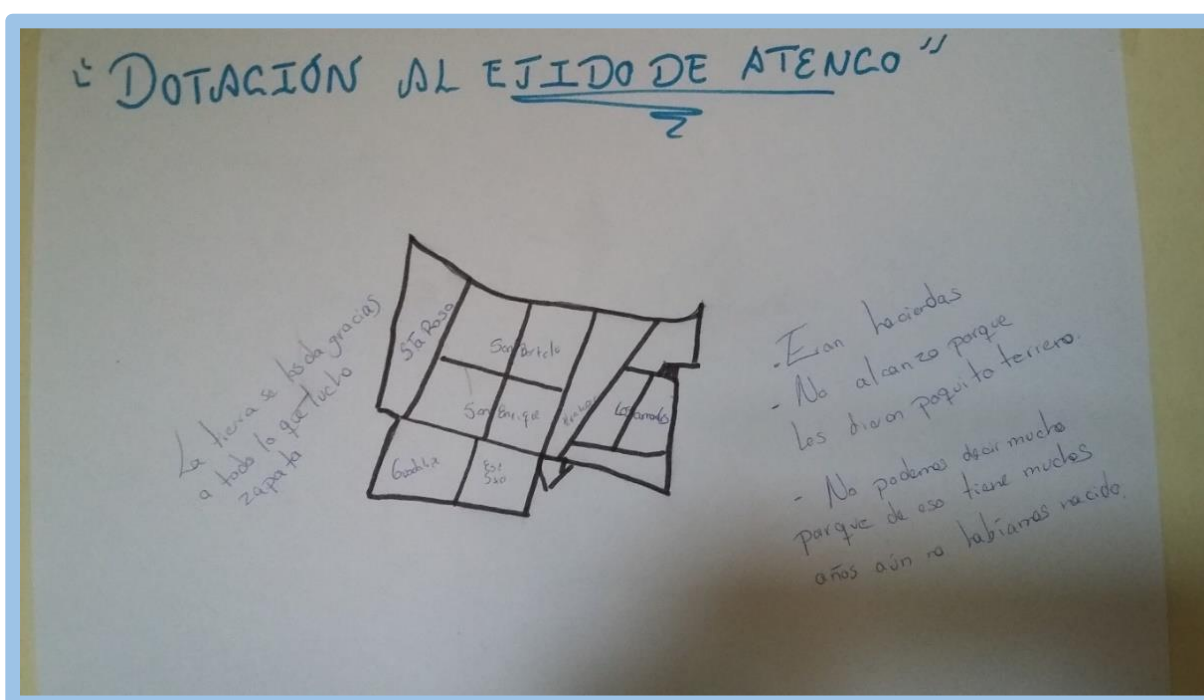 "DOTACIÓN AL EJIDO DE ATENCO"
La tierra se les da gracias
a todo lo que lucho
zapata
Sta Rosa
San Bartolo
San Enrique
- Eran haciendas
- No alcanzo porque
les dieron poquito terreno.
- No podemos decir mucho
porque de eso tiene muchos
años aún no habíamos nacido.